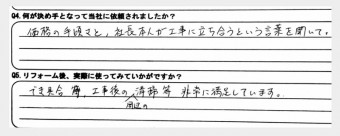 Q4. 何が決め手となって当社に依頼されましたか？
価格の手頃さと、社長本人が工事に立ち合うという言葉を聞いて。
Q5. リフォーム後、実際に使ってみていかがですか？
でき具合、工事後の周辺の清掃等 非常に満足しています。